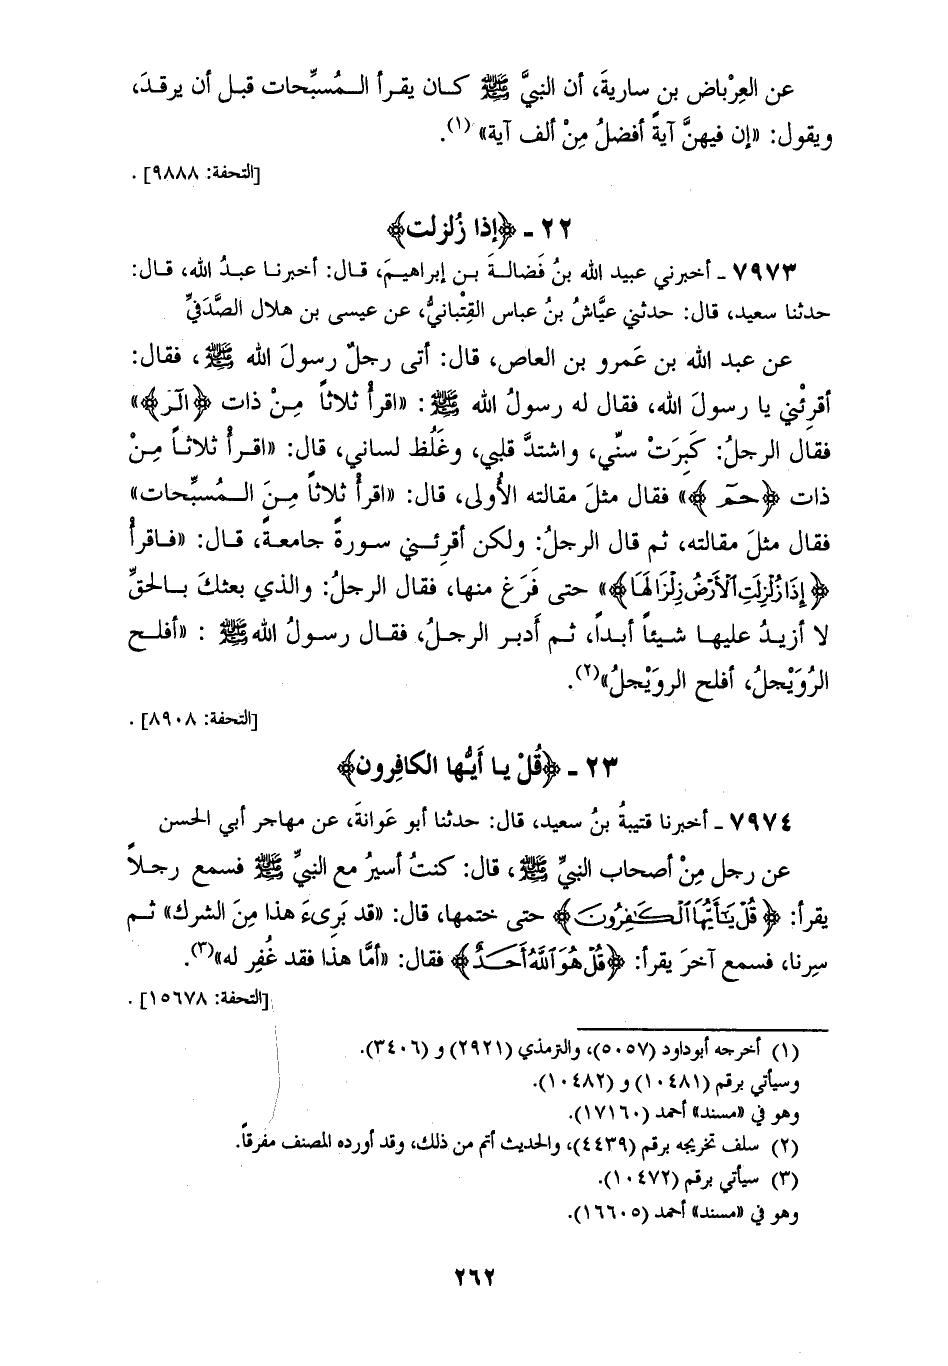 عن العِرْباض بن ساريةَ، أن النبيَّ ﷺ كان يقرأ المُسبِّحات قبل أن يرقدَ،
ويقول: «إن فيهنَّ آيةً أفضلُ مِنْ ألف آية»(١).
[التحفة: ٩٨٨٨] .
٢٢ ـ ﴿إذا زُلزلت﴾
٧٩٧٣ ـ أخبرني عبيد الله بنُ فَضالةَ بن إبراهيمَ، قال: أخبرنا عبدُ الله، قال:
حدثنا سعيد، قال: حدثني عيَّاشُ بنُ عباس القِتْبانيُّ، عن عيسى بن هلال الصَّدَفيِّ
عن عبد الله بن عَمرو بن العاص، قال: أتى رجلٌ رسولَ الله ﷺ، فقال:
أقرِئْني يا رسولَ الله، فقال له رسولُ الله ﷺ: «اقرأْ ثلاثاً مِنْ ذات ﴿الٓر﴾»
فقال الرجلُ: كَبِرَتْ سنِّي، واشتدَّ قلبي، وغَلُظ لساني، قال: «اقرأْ ثلاثاً مِنْ
ذات ﴿حمٓ﴾» فقال مثلَ مقالته الأُولى، قال: «اقرأْ ثلاثاً مِنَ المُسبِّحات»
فقال مثلَ مقالته، ثم قال الرجلُ: ولكن أقرِئني سورةً جامعةً، قال: «فاقرأْ
﴿إِذَا زُلْزِلَتِ ٱلْأَرْضُ زِلْزَالَهَا﴾» حتى فَرَغ منها، فقال الرجلُ: والذي بعثكَ بالحقِّ
لا أزيدُ عليها شيئاً أبداً، ثم أَدبر الرجلُ، فقال رسولُ الله ﷺ : «أفلح
الرُوَيْجلُ، أفلح الرويْجلُ»(٢).
[التحفة: ٨٩٠٨] .
٢٣ ـ ﴿قُلْ يا أَيُّها الكافِرون﴾
٧٩٧٤ ـ أخبرنا قتيبةُ بنُ سعيد، قال: حدثنا أبو عَوانةَ، عن مهاجر أبي الحسن
عن رجل مِنْ أصحاب النبيِّ ﷺ، قال: كنتُ أسيرُ مع النبيِّ ﷺ فسمع رجلاً
يقرأ: ﴿قُلْ يَٰٓأَيُّهَا ٱلْكَٰفِرُونَ﴾ حتى ختمها، قال: «قد بَرِىءَ هذا مِنَ الشرك» ثم
سِرنا، فسمع آخرَ يقرأ: ﴿قُلْ هُوَ ٱللَّهُ أَحَدٌ﴾ فقال: «أمَّا هذا فقد غُفِر له»(٣).
[التحفة: ١٥٦٧٨] .
(١) أخرجه أبوداود (٥٠٥٧)، والترمذي (٢٩٢١) و (٣٤٠٦).
وسيأتي برقم (١٠٤٨١) و (١٠٤٨٢).
وهو في «مسند» أحمد (١٧١٦٠).
(٢) سلف تخريجه برقم (٤٤٣٩)، والحديث أتم من ذلك، وقد أورده المصنف مفرقاً.
(٣) سيأتي برقم (١٠٤٧٢).
وهو في «مسند» أحمد (١٦٦٠٥).
٢٦٢